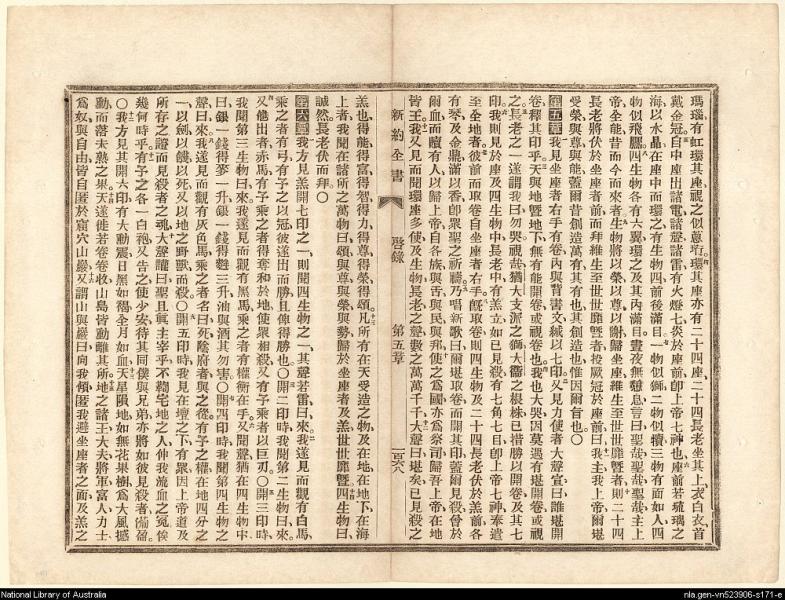 瑪瑙有虹環其座視之似葱珩環其座亦有二十四座二十四長老坐其上衣白衣首
戴金冠自中座出諸電諸聲諸雷有火燈七炎於座前卽上帝七神也座前若琉璃之
海以水晶在座中而環之有生物四前後滿目一物似獅二物似犢三物有面如人四
物似飛鷹四生物各有六翼環之及其內滿目晝夜無憩息言曰聖哉聖哉聖哉主上
帝全能昔而今而來者生物將以榮以尊以謝歸坐座維生至世世靡曁者則二十四
長老將伏於坐座者前而拜維生至世世靡曁者投厥冠於座前曰我主我上帝爾堪
受榮與尊與能蓋爾昔創造萬有其有也其創造也惟因爾旨也〇
第五章我見坐座者右手有卷內與背書文緘以七印又見力使者大聲宣曰誰堪開
卷釋其印乎天與地曁地下無有能開卷或視卷也我也大哭因莫遇有堪開卷或視
之長老之一遂謂我曰勿哭視哉猶大支派之獅大闢之根株已措勝以開卷及其七
印我則見於座及四生物中長老中有羔立如已見殺有七角七目卽上帝七神奉遣
至全地者彼前而取卷自坐座者右手旣取卷則四生物及二十四長老伏於羔前各
有琴及金鼎滿以香卽眾聖之祈禱乃唱新歌曰爾堪取卷而開其印蓋爾見殺曾於
爾血而贖有人以歸上帝自各族與舌與民與邦使之爲國亦爲祭司歸吾上帝在地
皆王我又見而聞環座多使及生物長老之聲數之萬萬千千大聲曰堪矣已見殺之
新約全書 啓錄 第五章 一百六八
羔也得能得富得智得力得尊得榮得頌凡所有在天受造之物及在地在地下在海
上者我聞在諸所之萬物曰頌與尊與榮與勢歸於坐座者及羔世世靡曁四生物曰
誠然長老伏而拜〇
第六章我方見羔開七印之一則聞四生物之一其聲若雷曰來我遂見而觀有白馬
乘之者有弓有予之以冠彼遂出而勝且俾得勝也〇開二印時我聞第二生物曰來
又他出者赤馬有予乘之者得奪和於地使眾相殺又有予乘者以巨刃〇開三印時
我聞第三生物曰來我遂見而觀有黑馬乘之者有權衡在手又聞聲猶在四生物中
曰銀一錢得麥一升銀一錢得麰三升油與酒其勿害〇開四印時我聞第四生物之
聲曰來我遂見而觀有灰色馬乘之者名曰死陰府者與之從有予之權在地四分之
一以劍以饑以死又以地之野獸而殺〇開五印時我見在壇之下有眾因上帝道及
所存之證而見殺者之魂大聲讙曰聖且眞主宰乎不鞫宅地之人伸我流血之冤俟
幾何時乎有予之各一白袍又告之使少安待其同僕與兄弟亦將如彼見殺者備盈
〇我方見其開六印有大動震日黑如褐全月如血天星隕地如無花果樹爲大風撼
動而落未熟之果天遂徙若卷卷收山島皆動離其所地之諸王大夫將軍富人力士
爲奴與自由皆自匿於窟穴山巖又謂山與巖曰向我傾匿我避坐座者之面及羔之
National Library of Australia
nla.gen-vn523906-s171-e